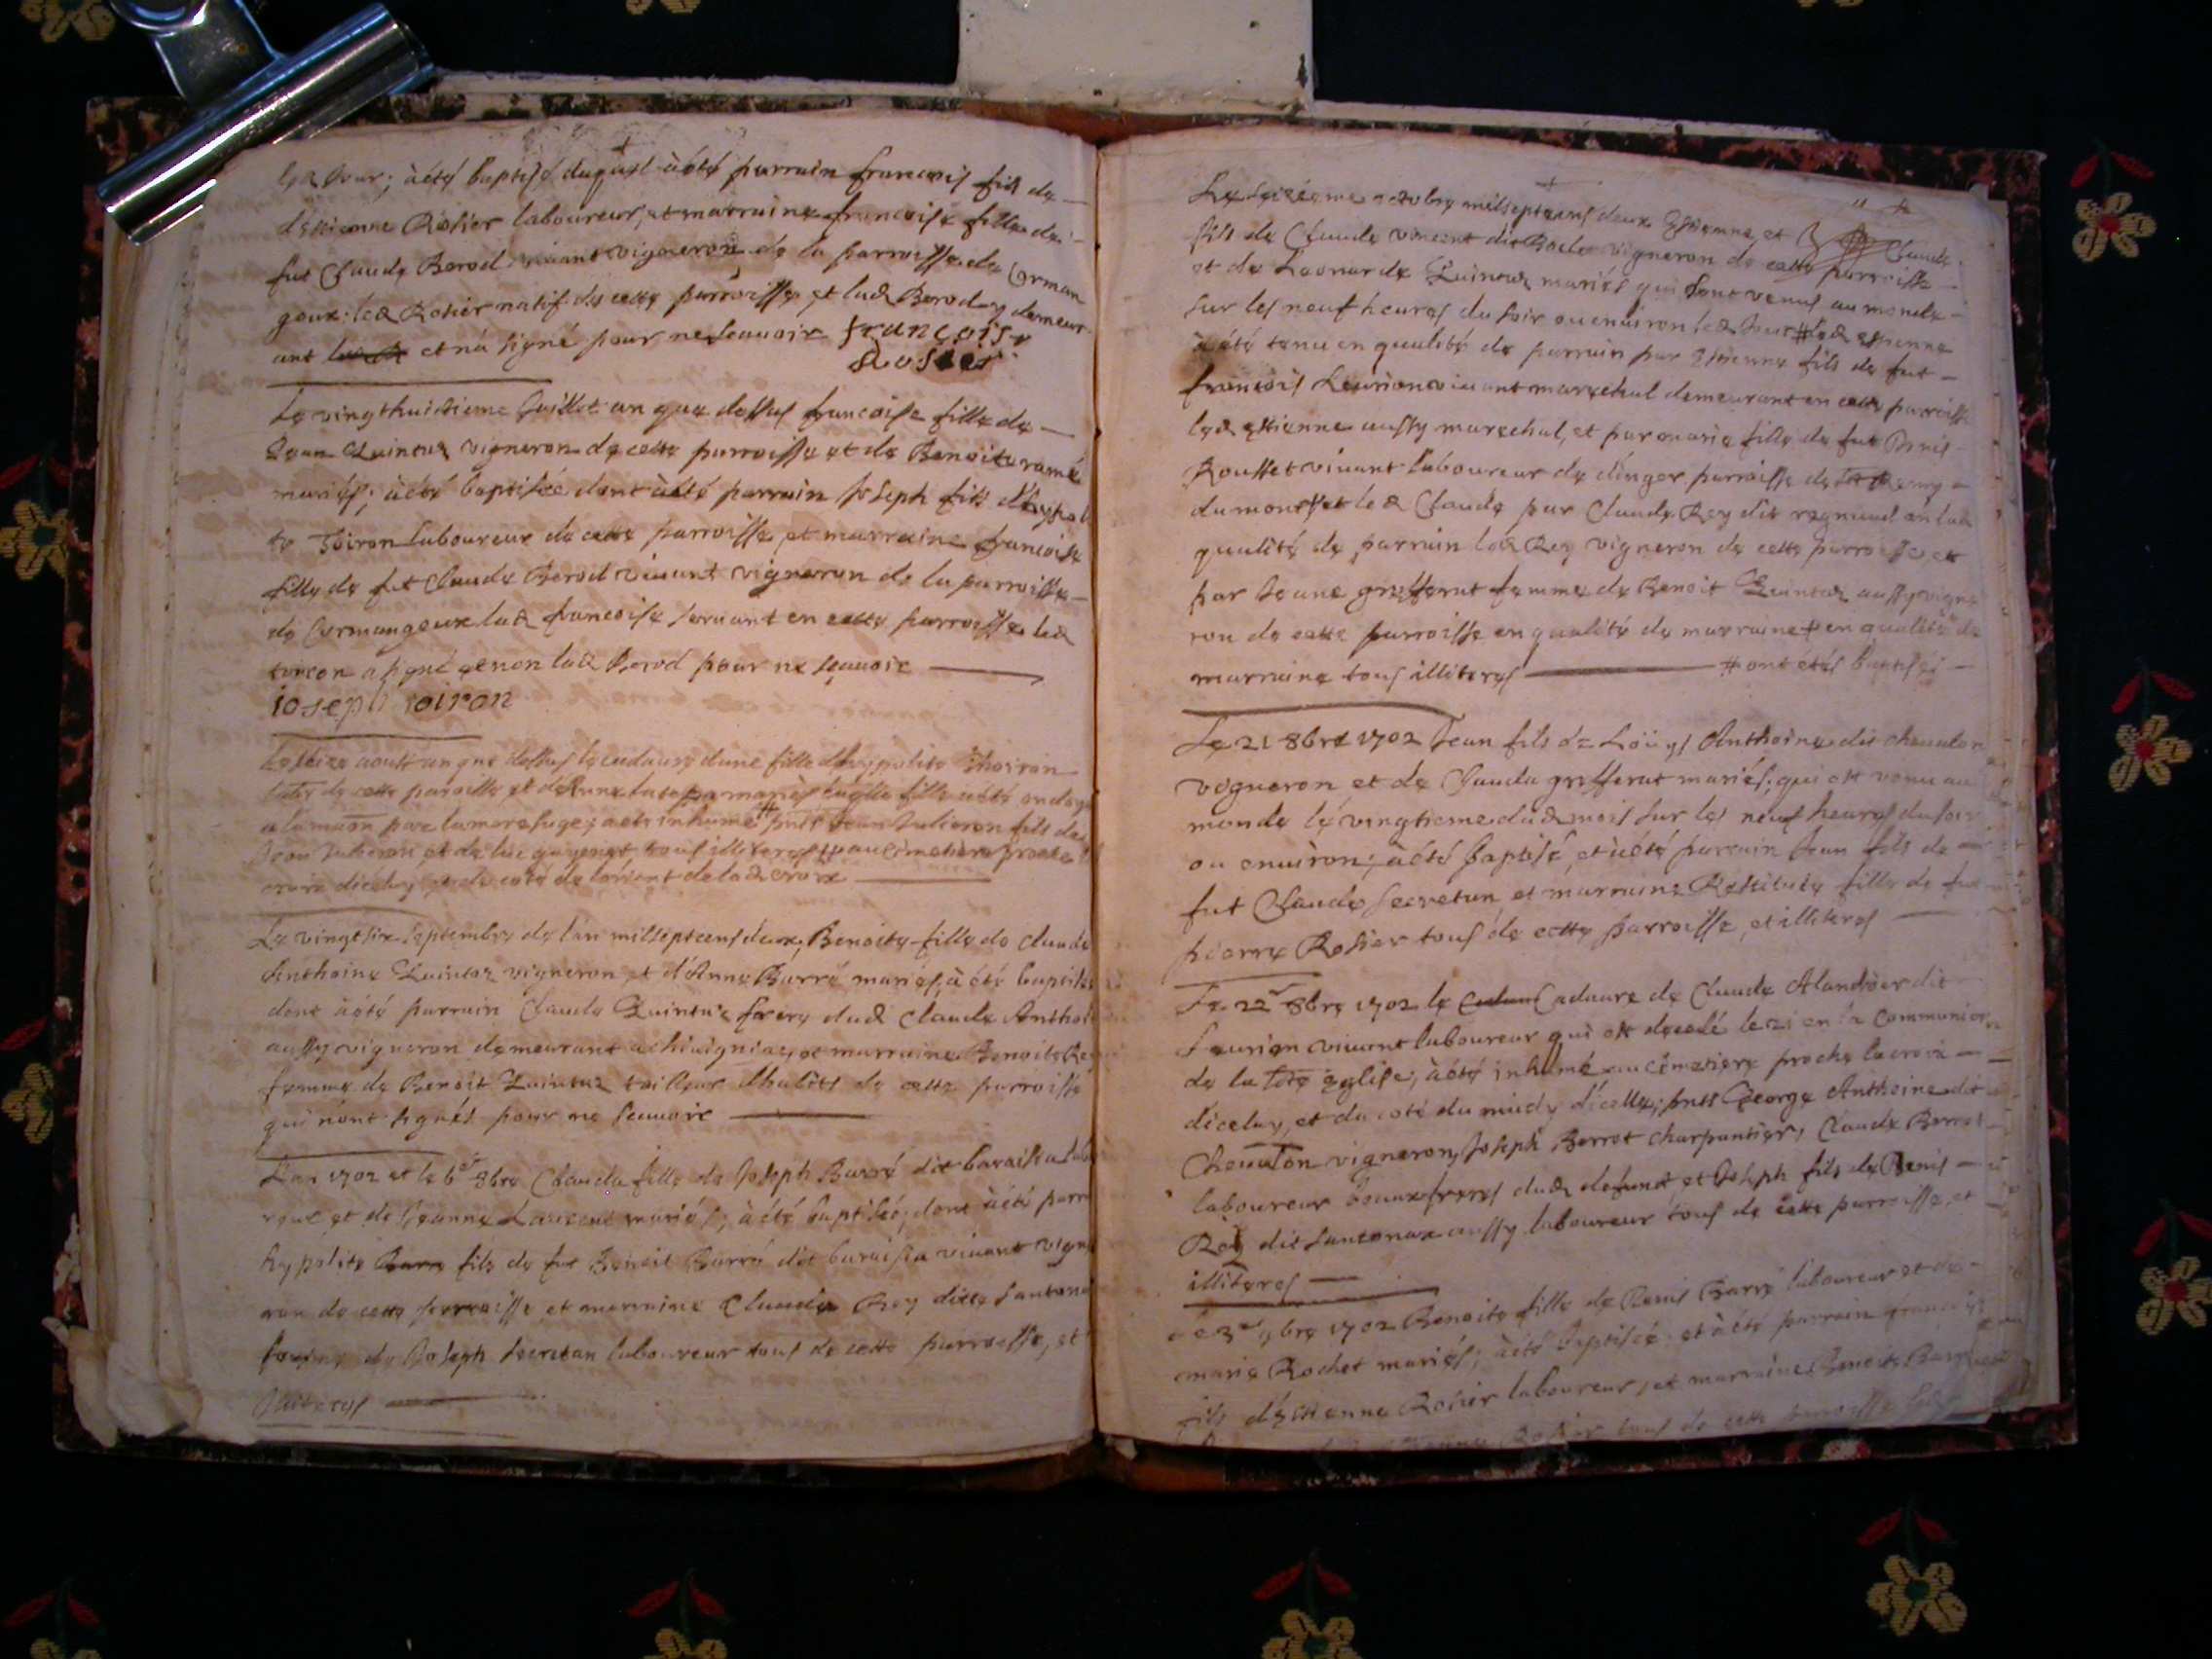 led Jour; à été baptisé duquel à été parrain francois fils de
d'Estienne Rosier laboureur, et marraine francoise fille de
fut Claude Berod vivant vigneron de la parroisse de Corman
goux: led Rosier natif de cette parroisse et lad Berod y demeur
ant et n'a signé pour ne scauoir françois
Rosier
Le vingthuictieme Juillet an que dessus francoise fille de
Jean Quintaz vigneron de cette parroisse et de Benoite ramé
mariés; à été baptisée dont à été parrain Joseph fils d'hypoli
te Toiron laboureur de cette parroisse, et marraine francoise
fille de fut Claude Berod vivant vigneron de la parroisse
de Cormangoux lad francoise servant en cette parroisse led
toiron a signé et non lad Berod pour ne scauoir
ioseph toiron
Le seize aoust an que dessus le cadaure dune fille dhyppolite Thoiron
de cette paroisse et de mariés laqlle fille à été ondoyé
a la maison par la mere sage; a été inhumé pnts Jean Julieron fils de
Jean Julieron et de tous illiteres au cimetiere proche la
croix diceluy et du coté de lorient de lad croix
Le vingtsix septembre de l'an milseptcens deux, Benoite fille de Claude
Anthoine Quintaz vigneron et d'Anne Barré mariés, à été baptisée
dont à été parrain Claude Quintaz frere dud Claude Anthoi
aussy vigneron demeurant a chiuigniaz, et marraine Benoite Rey
femme de Benoit Quintaz tailleur d'habits de cette parroisse
qui n'ont signés pour ne scauoir
L'an 1702 et le 6e 8bre Clauda fille de Joseph Barré dit baraisia labou
reur et de Jeanne Laurent mariés; à été baptisée; dont à été parra
hypolite Barra fils de fut Benoit Barré dit baraisia vivant vigne
ron de cette parroisse et marraine Clauda Rey ditte santona
femme de Joseph Secretan laboureur tous de cette parroisse, et
Illiteres
Le seizieme octobre milseptcens deux Estienne et Claude
fils de Claude vincent dit vigneron de cette parroisse
et de Leonarde Quintaz mariés qui sont venus au monde
sur les neuf heures du soir ou enuiron led Jour # led estienne
à été tenu en qualité de parrain par Estienne fils de fut
francois Leurion vivant mareschal demeurant en cette parroisse
led estienne aussy mareschal, et par marie fille de fut Denis
Rousset vivant laboureur de dingier parroisse de St Remy
du mont, et led Claude par Claude Rey dit regnaud en lad
qualité de parrain led Rey vigneron de cette parroisse, et
par Jeane grifferat femme de Benoit Quintaz aussy vigne
ron de cette parroisse en qualité de marraine en qualité de
marraine tous illiteres # ont étés baptisés
Le 21 8bre 1702 Jean fils de Loüys Anthoine dit cheualon
vigneron et de Clauda grifferat mariés; qui est venu au
monde le vingtieme dud mois sur les neuf heures du soir
ou enuiron; à été baptisé, et à été parrain Jean fils de
fut Claude Secretan, et marraine Restitute fille de fut
pierre Rosier tous de cette parroisse, et illiteres
Le 22e 8bre 1702 le Cadaure de Claude Alandroer dit
Leurion vivant laboureur qui est decedé le 21 en la Communion
de la Ste Eglise, à été inhumé au cimetiere proche la croix
diceluy, et du coté du midy d'icelle; pnts George Anthoine dit
Cheualon vigneron, Joseph Berrot charpantier, Claude Berrot
laboureur beaux freres dud defunct, et Joseph fils de Denis
Rey dit santonax aussy laboureur tous de cette parroisse, et
illiteres
Le 3e 9bre 1702 Benoite fille de Denis Barré laboureur et de
marie Rochet mariés; à été baptisée et à été parrain francois
fils d'Estienne Rosier laboureur, et marraine Benoite Barré
Rosier tous de cette parroisse